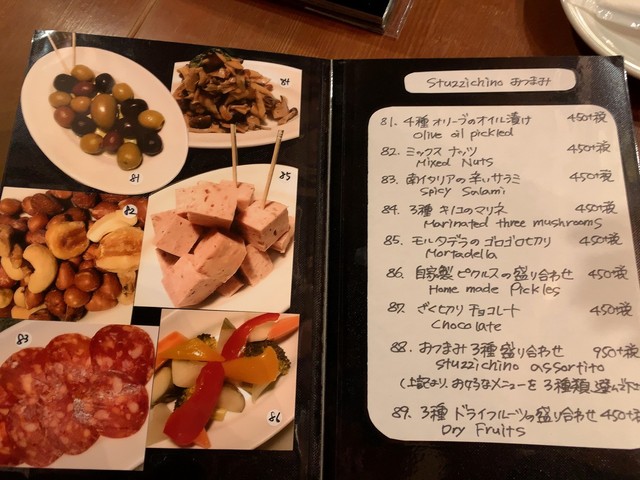 81
84
85
82
83
86
Stuzzichino おつまみ
81. 4種オリーブのオイル漬け 450+税
Olive oil pickled
82. ミックス ナッツ 450+税
Mixed Nuts
83. 南イタリアの辛いサラミ 450+税
Spicy Salami
84. 3種 キノコのマリネ 450+税
Marinated three mushrooms
85. モルタデラのゴロゴロ切り 450+税
Mortadella
86. 自家製 ピクルスの盛り合わせ 450+税
Home made Pickles
87. ざく切り チョコレート 450+税
Chocolate
88. おつまみ 3種 盛り合わせ 950+税
Stuzzichino assortito
(上記より、お好きなメニューを 3種類
89. 3種 ドライフルーツの盛り合わせ 450+税
Dry Fruits